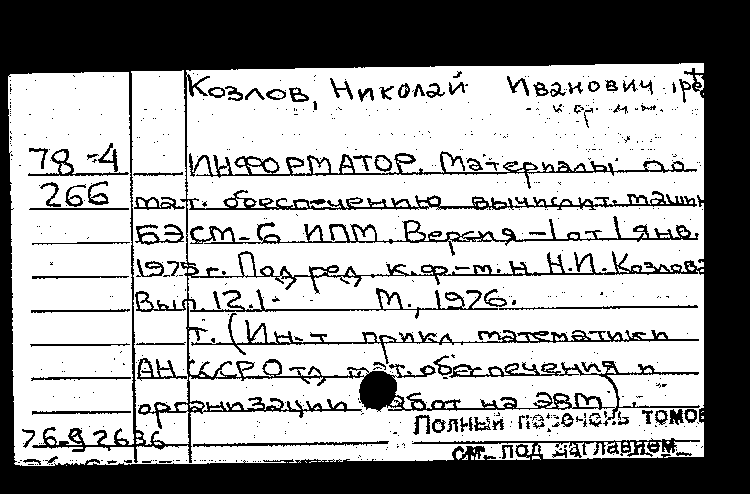 Козлов, Николай Иванович, ред
78-4 ИНФОРМАТОР. Материалы по
266 мат. обеспечению вычислит. машин
БЭСМ-6 ИПМ. Версия -1 от 1 янв.
1975 г. Под ред. к.ф.-м.н. Н.И. Козлова
Вып. 12.1- М., 1976.
т. (Ин-т прикл. математики
АН СССР Отд. мат. обеспечения и
организации работ на ЭВМ).
76-92636 Полный перечень томов
см. под заглавием